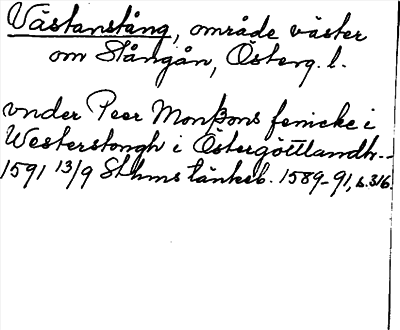 Västanstång, område väster
om Stångån, Österg. l.
vnder Peer Monßons fenicke i
Westerstongh i Östergöttlandh..
1591 13/9 Sthms tänkeb. 1589-91, s. 316.